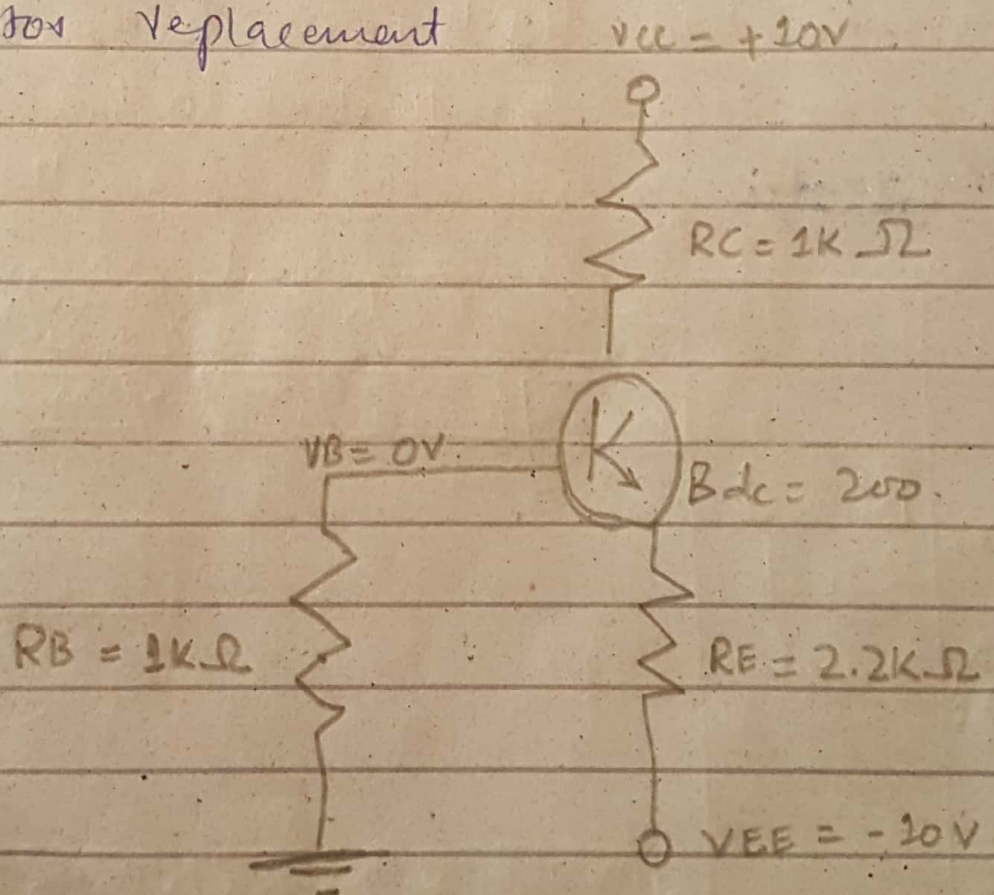 replacement
VCC = +10V
RC = 1K Ω
VB = 0V.
Bdc = 200.
RB = 1K Ω
RE = 2.2K Ω
VEE = -10V